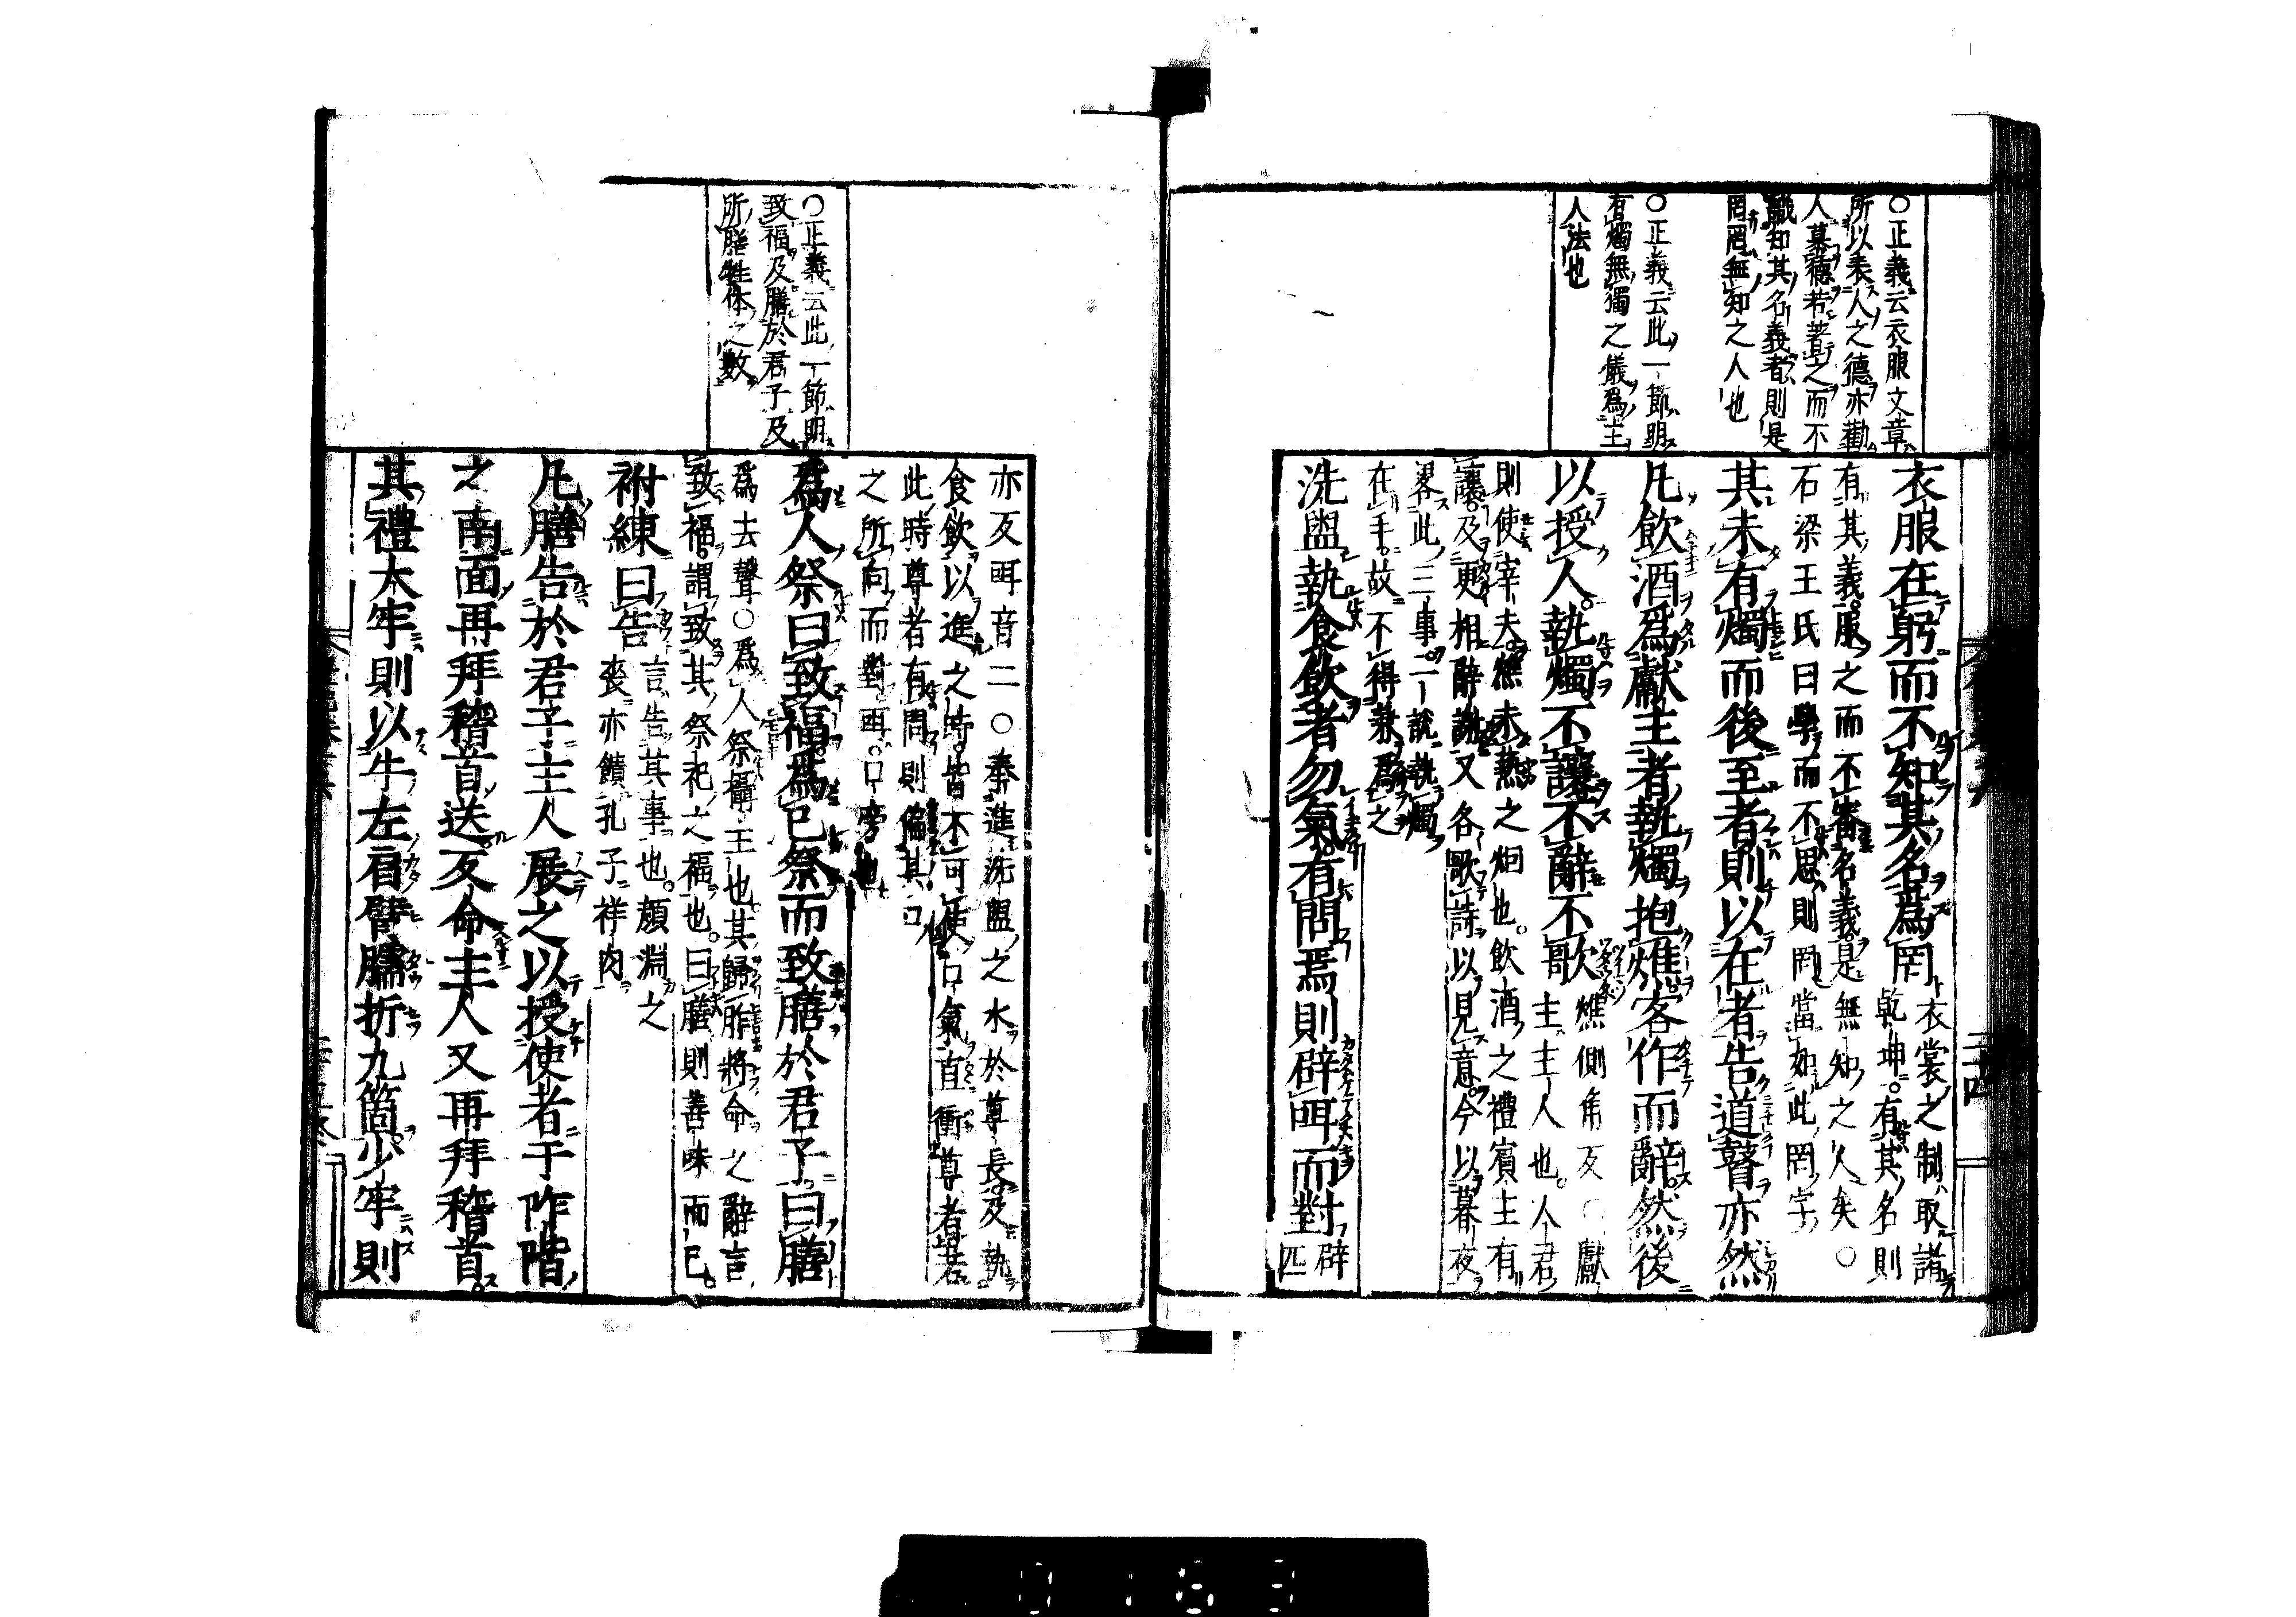 〇正義云衣服文章
所以表人之德亦勸
人慕德若著之而不
識知其名義者則是
罔罔無知之人也
〇正義云此一節明
有燭無燭之儀爲主
人法也
衣服在躬而不知其名爲罔衣裳之制取諸
乾坤有其名則
有其義服之而不審名義是無知之人矣〇
石梁王氏曰學而不思則罔當如此罔字
其未有燭而後至者則以在者告道瞽亦然
凡飲酒爲獻主者執燭抱燋客作而辭然後
以授人執燭不讓不辭不歌燋側角反〇獻
主主人也人君
則使宰夫燋未爇之炬也飲酒之禮賓主有
讓及更相辭謝又各歌詩以見意今以暮夜
畧此三事一說執燭
在手故不得兼爲之
洗盥執食飲者勿氣有問焉則辟咡而對辟
匹
亦反咡音二〇奉進洗盥之水於尊長及執
食飲以進之時皆不可使口氣直衝尊者若
此時尊者有問則偏其口
之所向而對咡口旁也
〇正義云此一節明
致福及膳於君子及
所膳牲体之數
爲人祭曰致福爲已祭而致膳於君子曰膳
爲去聲〇爲人祭攝主也其歸胙將命之辭言
致福謂致其祭祀之福也曰膳則善味而已
祔練曰告言告其事也顏淵之
喪亦饋孔子祥肉
凡膳告於君子主人展之以授使者于阼階
之南面再拜稽首送反命主人又再拜稽首
其禮大牢則以牛左肩臂臑折九箇少牢則